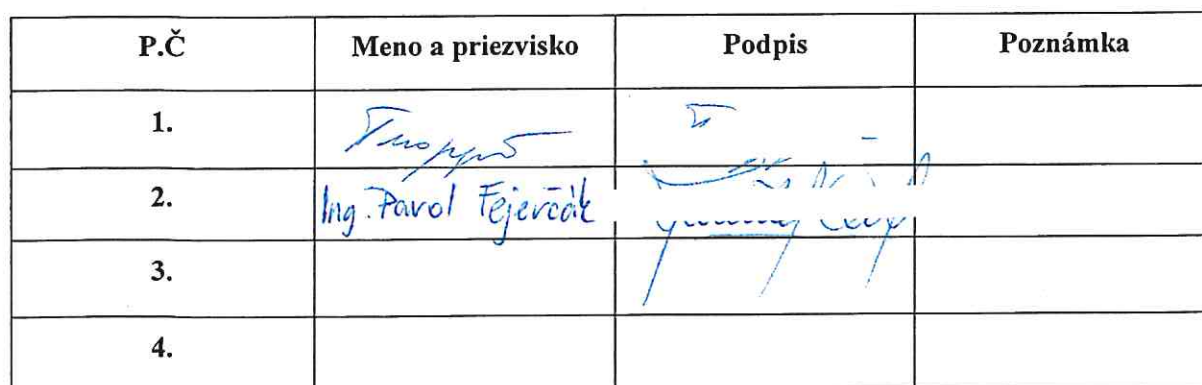 P.Č Meno a priezvisko Podpis Poznámka
1.
2. Ing. Pavol Fejerčák
3.
4.